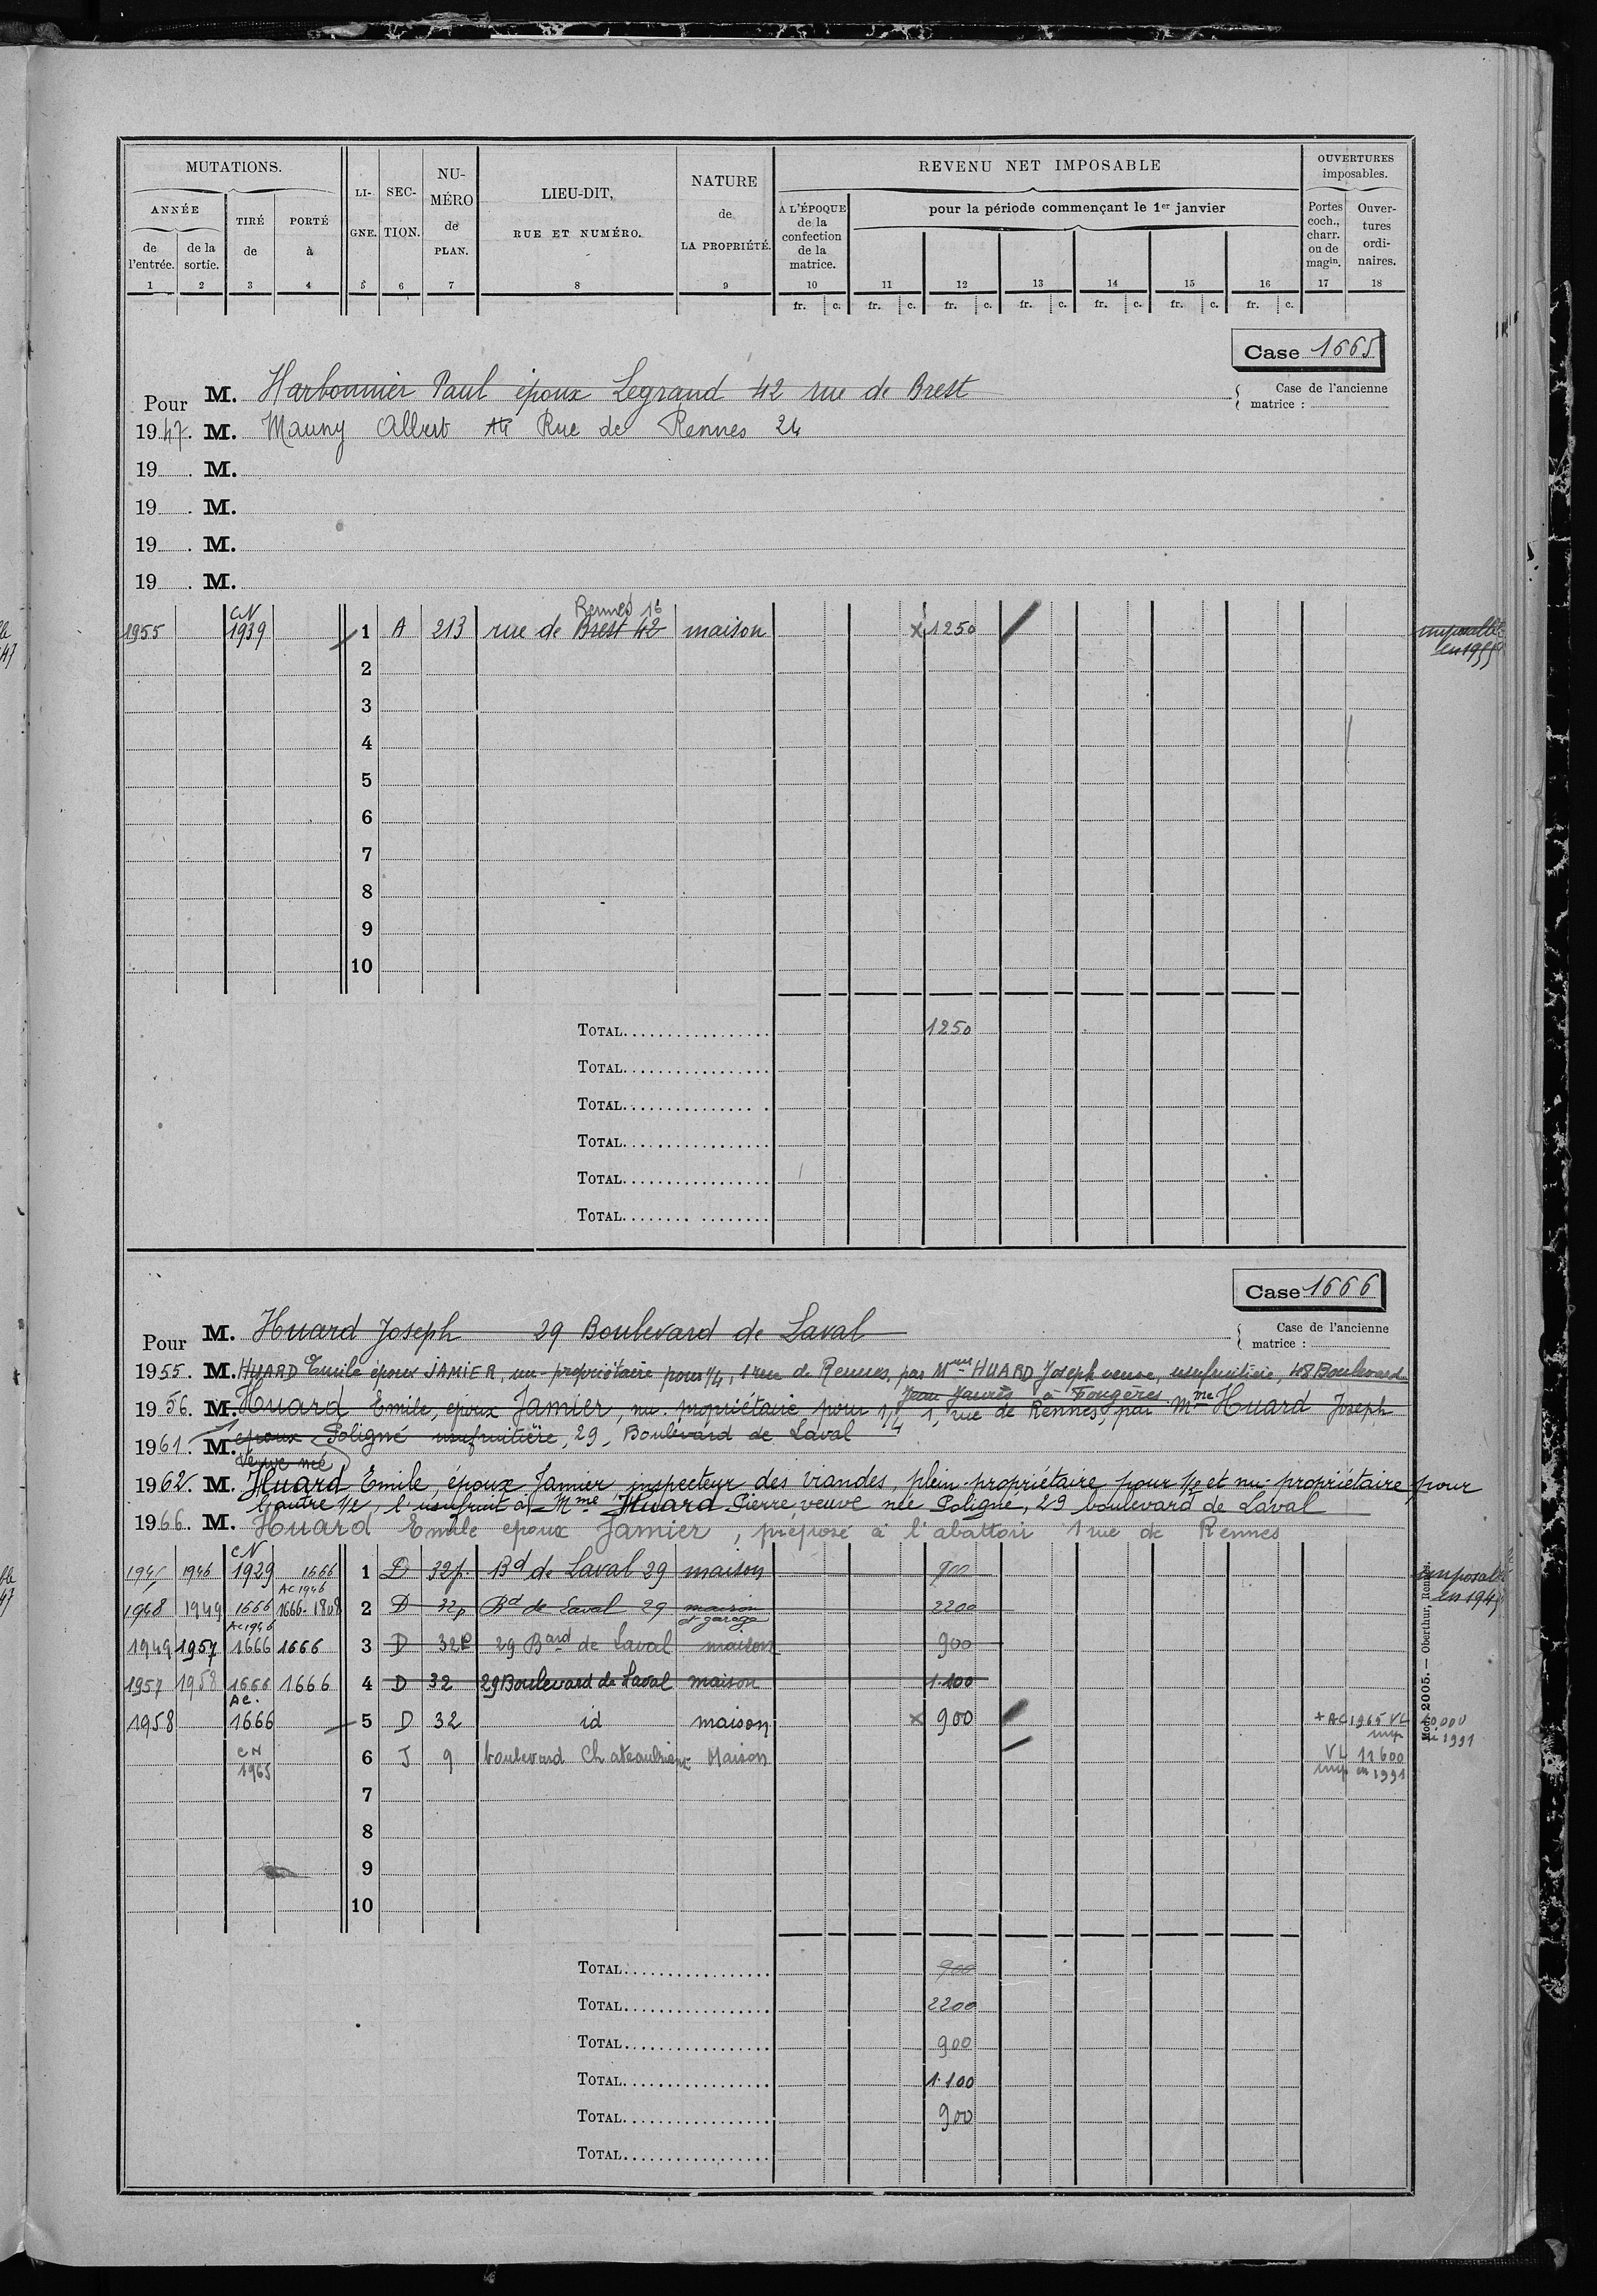 MUTATIONS.
ANNÉE
de l'entrée.
de la sortie.
TIRÉ de
PORTÉ à
LI-GNE.
SEC-TION.
NU-MÉRO de PLAN.
LIEU-DIT,
RUE ET NUMÉRO.
NATURE
de
LA PROPRIÉTÉ.
REVENU NET IMPOSABLE
À L'ÉPOQUE de la confection de la matrice.
pour la période commençant le 1er janvier
OUVERTURES imposables.
Portes coch., charr. ou de magin.
Ouver-tures ordi-naires.
1 2 3 4 5 6 7 8 9 10 11 12 13 14 15 16 17 18
fr. c. fr. c. fr. c. fr. c. fr. c. fr. c. fr. c.
Case 1665
Pour M. Harbonnier Paul époux Legrand 42 rue de Brest
Case de l'ancienne
matrice :
1947. M. Mauny Albert Rue de Rennes 24
19 . M.
19 . M.
19 . M.
19 . M.
CN Rennes 16
1955 1939 1 A 213 rue de Brest 42 maison x 1250
imposable
en 1955
2
3
4
5
6
7
8
9
10
TOTAL 1250
TOTAL
TOTAL
TOTAL
TOTAL
TOTAL
Case 1666
Pour M. Huard Joseph 29 Boulevard de Laval
Case de l'ancienne
matrice :
1955. M. HUARD Emile époux JAMIER, nu-propriétaire pour 1/4, 1 rue de Rennes, par Mme HUARD Joseph veuve, usufruitière, 48 Boulevard
Jean Jaurès à Fougères
1956. M. Huard Emile, époux Jamier, nu-propriétaire pour 1/4 1, rue de Rennes, par Mme Huard Joseph
1961. M. époux Poligné usufruitière, 29, Boulevard de Laval
Veuve née
1962. M. Huard Emile, époux Jamier inspecteur des viandes, plein-propriétaire pour 1/2 et nu-propriétaire pour
l'autre 1/2, l'usufruit à Mme Huard Pierre veuve née Poligné, 29 boulevard de Laval
1966. M. Huard Emile époux Jamier, préposé à l'abattoir 1 rue de Rennes
CN
1945 1946 1929 1666 1 D 32p. Bd de Laval 29 maison 900
imposable
en 1945
AC 1946
1948 1949 1666 1666-1808 2 D 32p Bd de Laval 29 maison et garage 2200
AC 1946
1949 1957 1666 1666 3 D 32P 29 Bard de Laval maison 900
1957 1958 1666 1666 4 D 32 29 Boulevard de Laval maison 1.100
AC.
1958 1666 5 D 32 id maison x 900 + AC 1965 VL
imp 1991
CN 1965 6 J 9 boulevard Maison VL 11600
imp en 1991
7
8
9
10
TOTAL 900
TOTAL 2200
TOTAL 900
TOTAL 1.100
TOTAL 900
TOTAL
Mod. 2005. — Oberthur, Rennes.